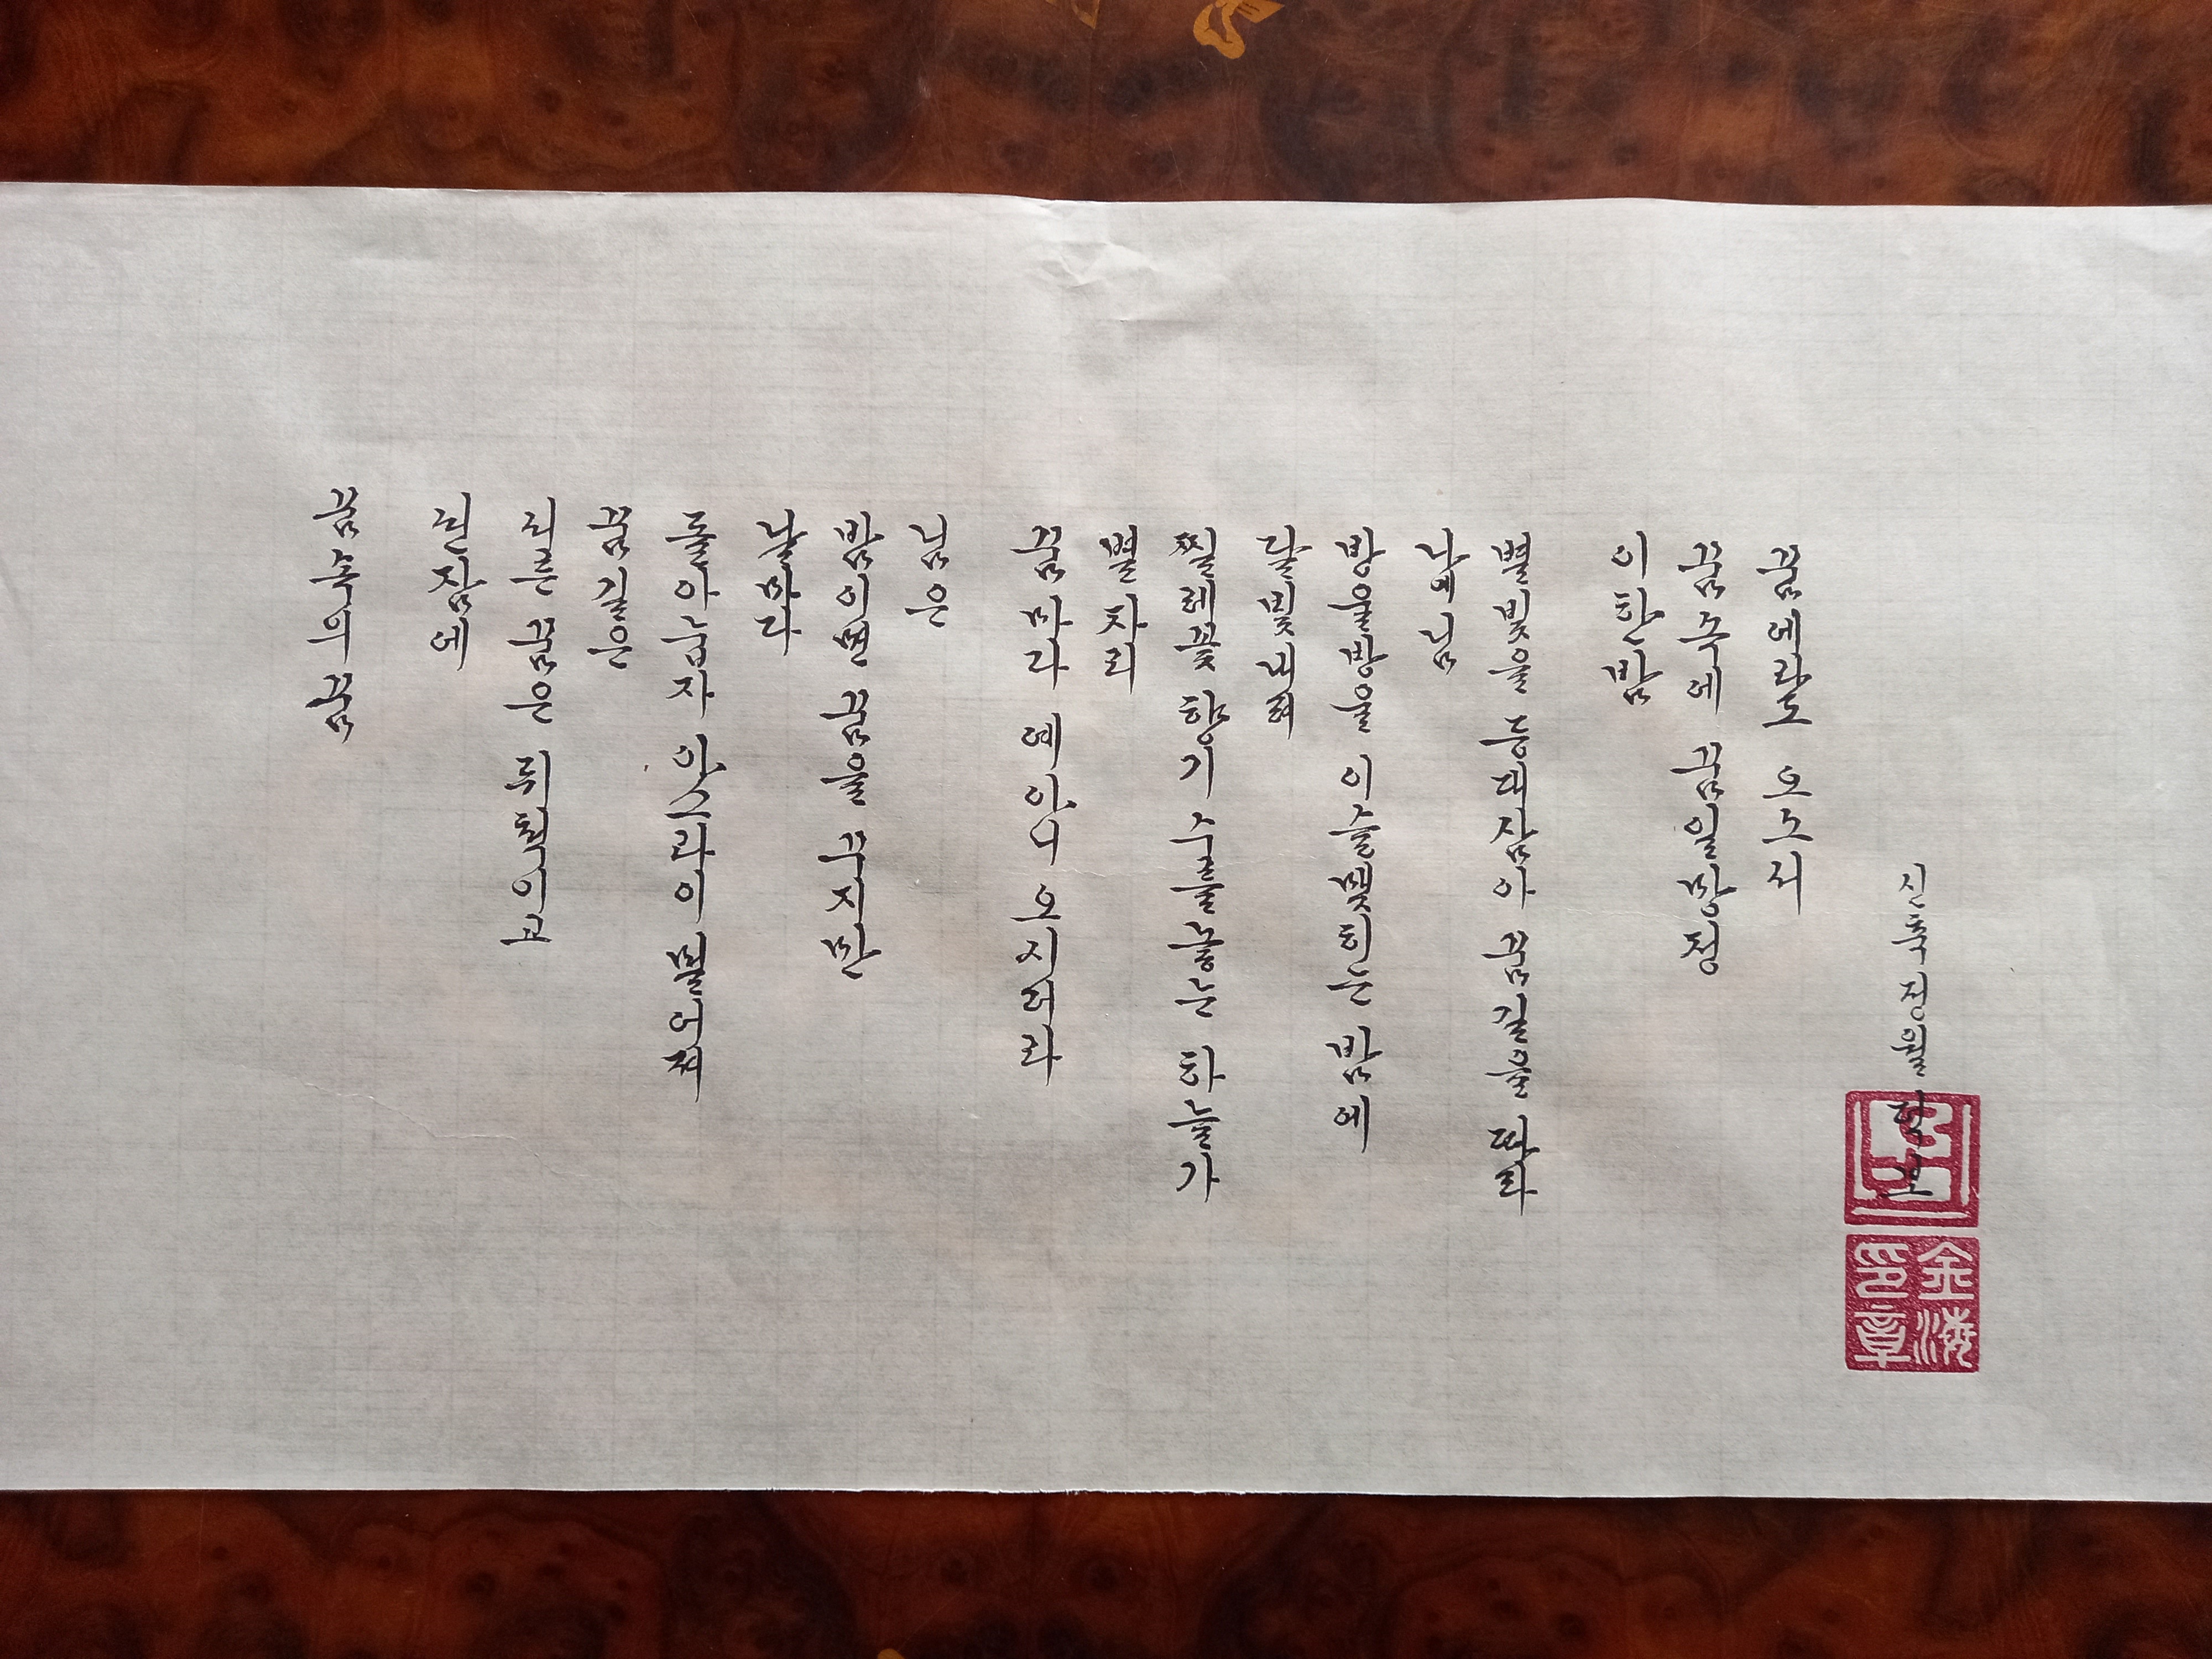 꿈 속의 꿈
선잠에
서른 꿈은 뒤척이고
꿈길은
돌아눕자 아스라이 멀어져
날마다
밤이면 꿈을 꾸지만
님은
꿈마다 예 아니 오시더라
별자리
찔레꽃 향기 수를 놓는 하늘가
달빛 비춰
방울방울 이슬 맺히는 밤에
나의 님
별빛을 등대 삼아 꿈길을 따라
이 한 밤
꿈속에 꿈일망정
꿈에라도 오소서
신축 정월
金海
印章